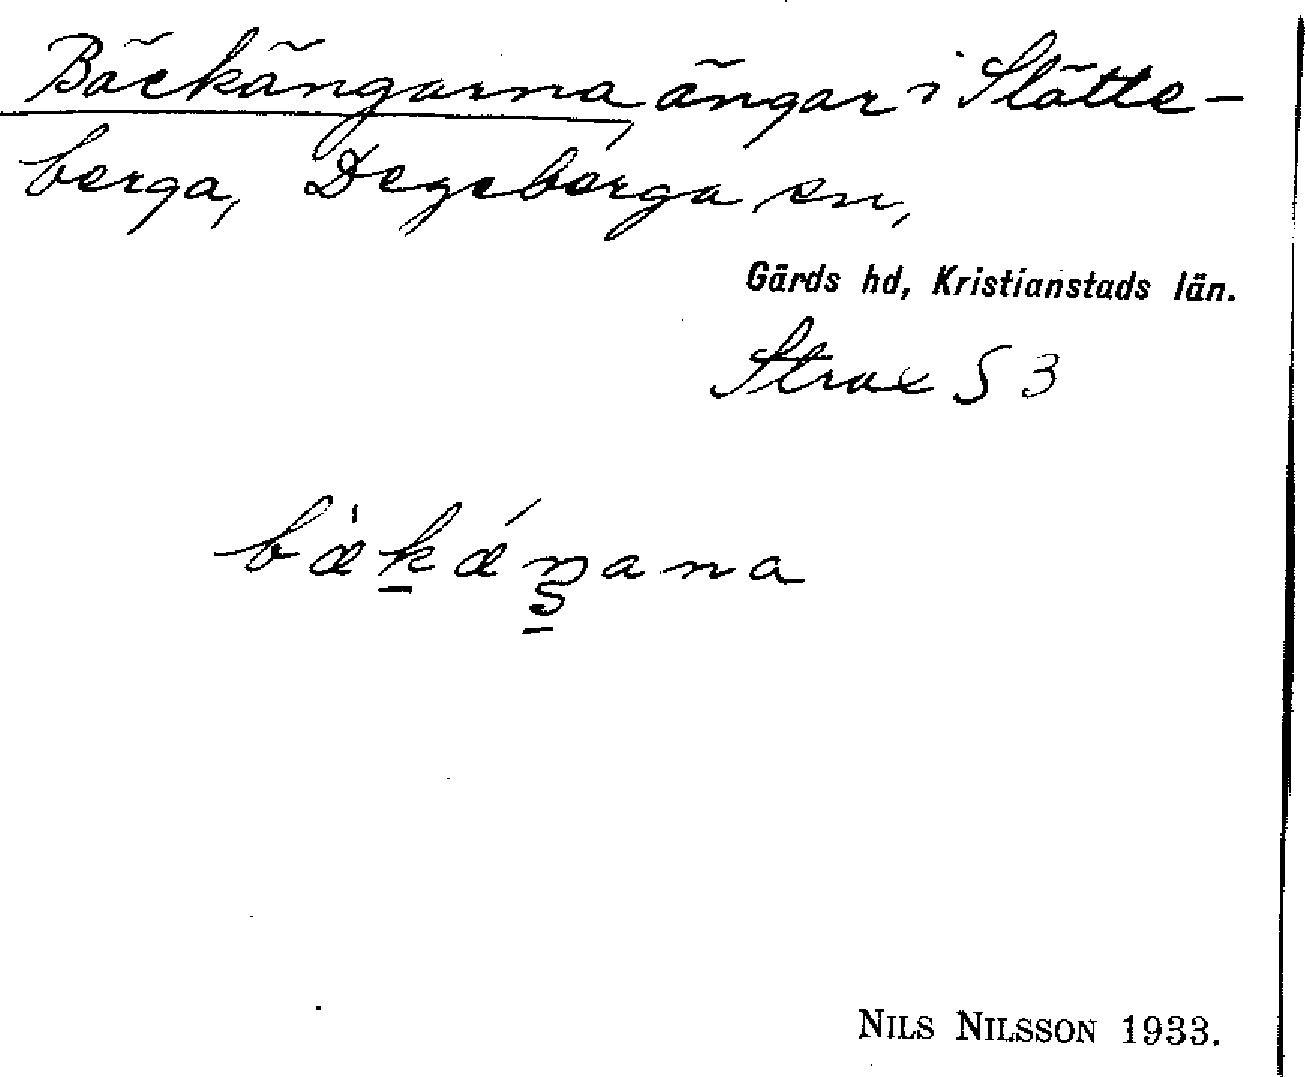 Bäckängarna, ängar i Slätte-
berga, Degeberga sn,
Gärds hd, Kristianstads län.
Strax S 3
bæ̀ḵǽŋana
NILS NILSSON 1933.